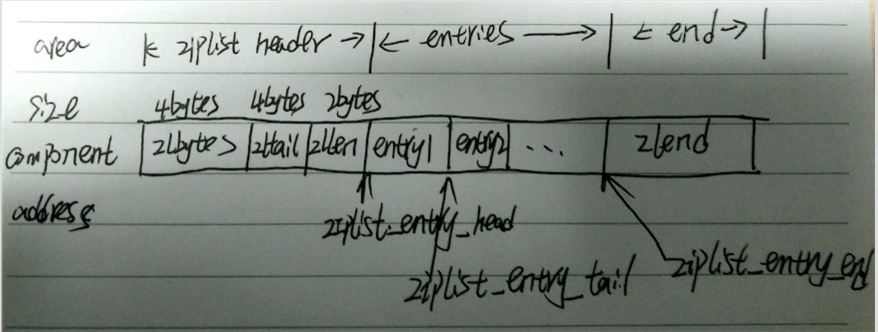 area |← ziplist header →|← entries →| ← end → |
size 4bytes 4bytes 2bytes
component zlbytes zltail zllen entry1 entry2 ... zlend
address
ziplist_entry_head
ziplist_entry_tail ziplist_entry_end